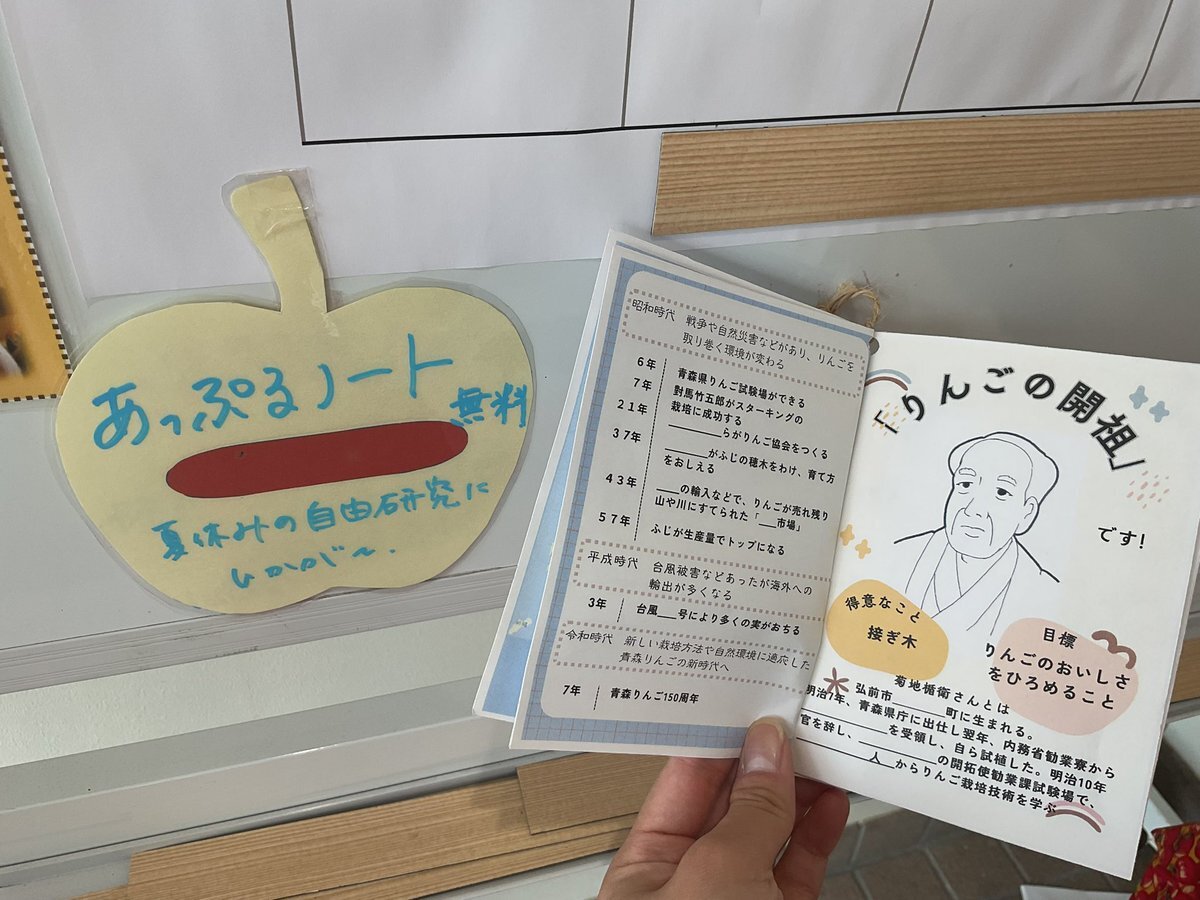 あっぷるノート
無料
夏休みの自由研究に
いかが〜.
昭和時代 戦争や自然災害などがあり、りんごを
取り巻く環境が変わる
6年 青森県りんご試験場ができる
7年 對馬竹五郎がスターキングの
栽培に成功する
21年 ________らがりんご協会をつくる
37年 ______がふじの穂木をわけ、育て方
をおしえる
43年 ___の輸入などで、りんごが売れ残り
山や川にすてられた「___市場」
57年 ふじが生産量でトップになる
平成時代 台風被害などあったが海外への
輸出が多くなる
3年 台風___号により多くの実がおちる
令和時代 新しい栽培方法や自然環境に適応した
青森りんごの新時代へ
7年 青森りんご150周年
「りんごの開祖」
です!
得意なこと
接ぎ木
目標
りんごのおいしさ
をひろめること
菊地楯衛さんとは
弘前市________町に生まれる。
明治7年、青森県庁に出仕し翌年、内務省勧業寮から
________を受領し、自ら試植した。明治10年
官を辞し、________の開拓使勧業課試験場で、
________人__からりんご栽培技術を学ぶ